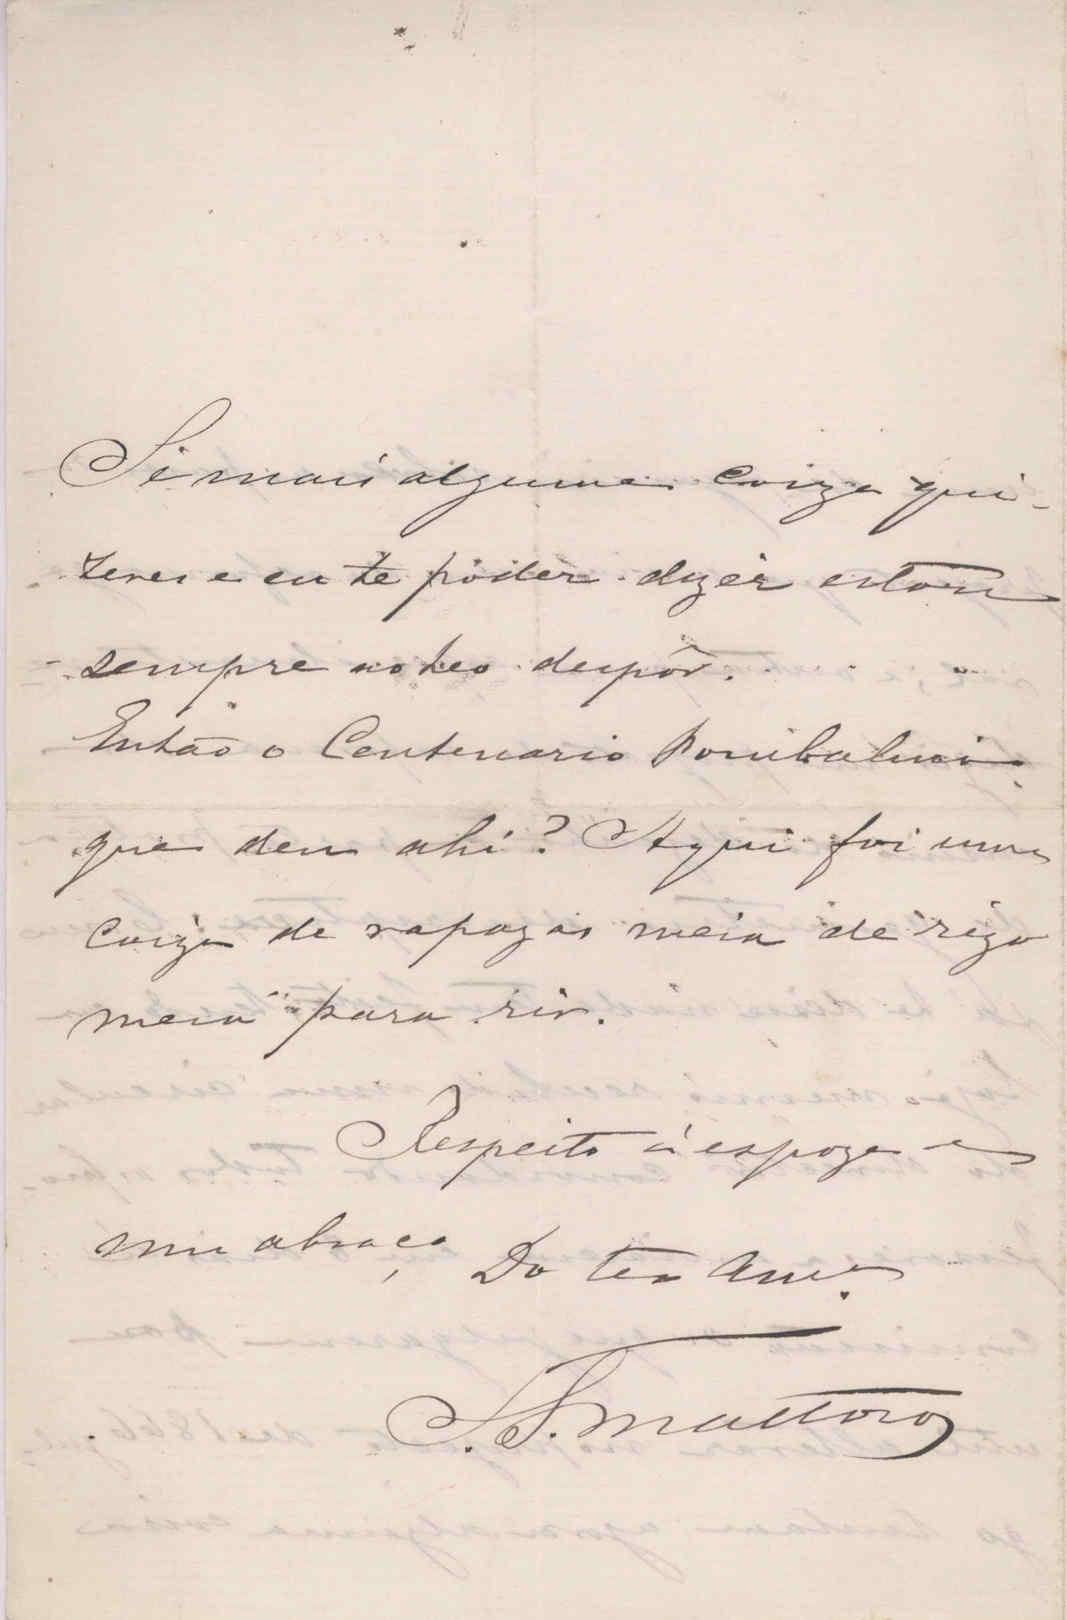 Se mais alguma coiza qui-
zeres e eu te poder dizer estou
sempre ao teo dispôr.
Então o Centenario Pombalino
que deu ahi? Aqui foi uma
coiza de rapazes meia de rizo
meia para rir.
Respeito á espoza e
um abraço, Do teu Amo.
J. J. Mattoso